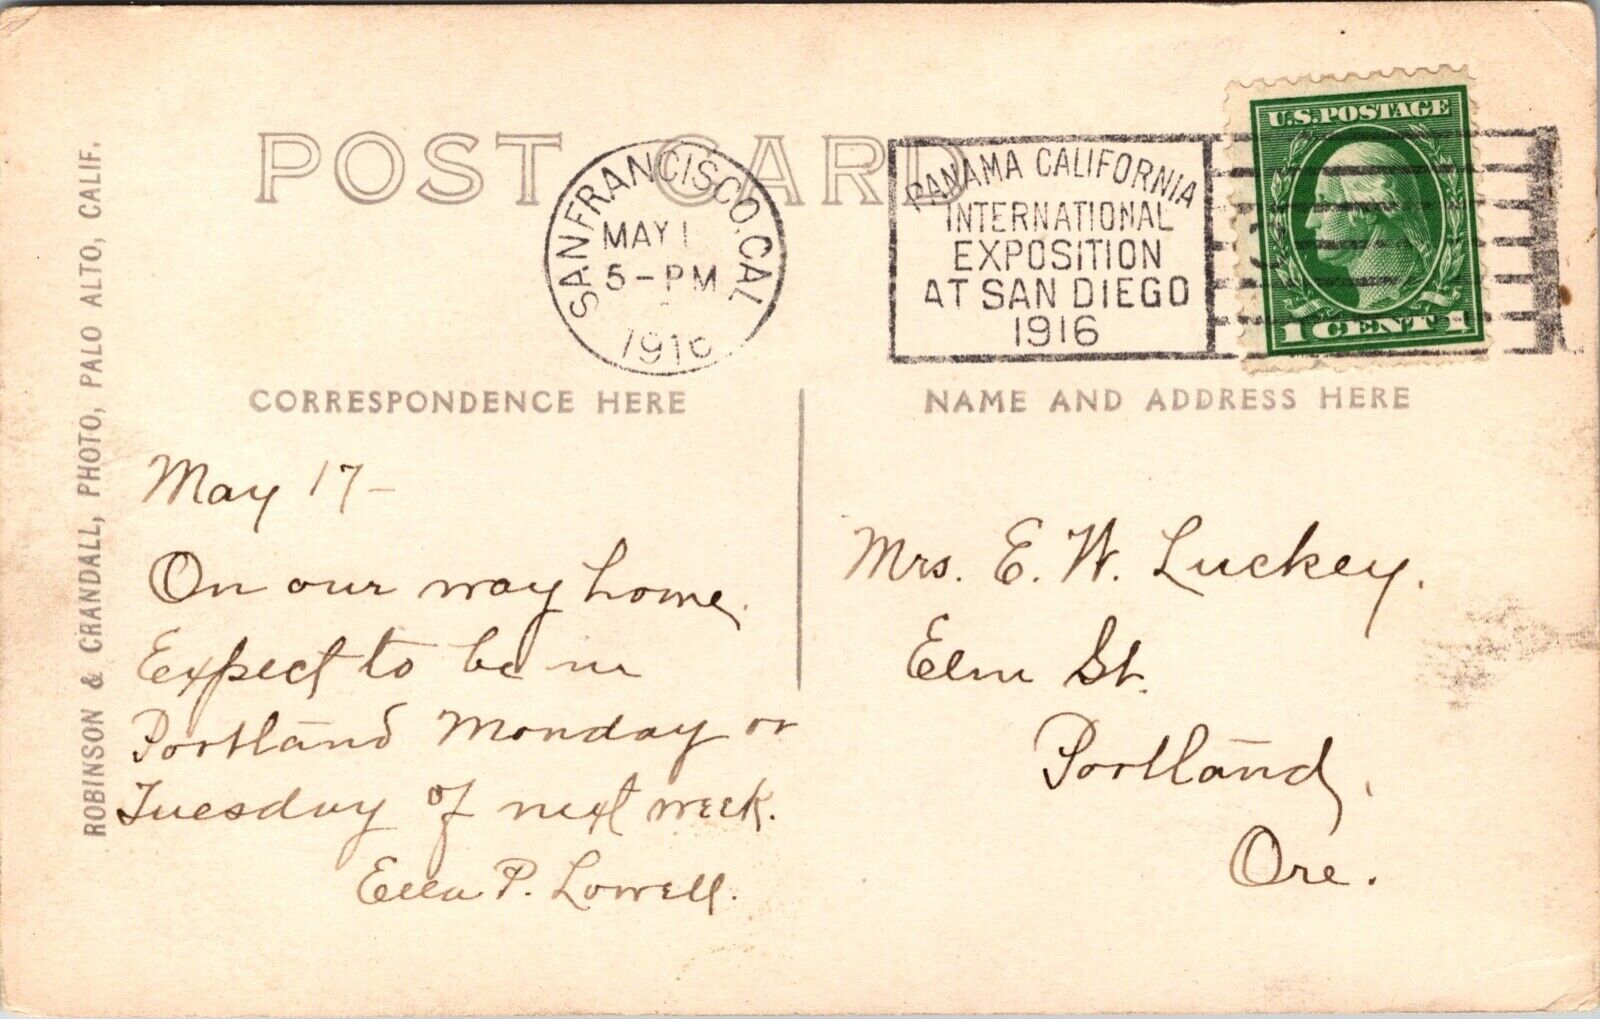 POST CARD
SAN FRANCISCO, CAL
MAY 1
5-PM
1916
PANAMA CALIFORNIA
INTERNATIONAL
EXPOSITION
AT SAN DIEGO
1916
U.S. POSTAGE
1 CENT 1
CORRESPONDENCE HERE
NAME AND ADDRESS HERE
ROBINSON & CRANDALL, PHOTO, PALO ALTO, CALIF.
May 17-
On our way home.
Expect to be in
Portland Monday or
Tuesday of next week.
Ella P. Lowell.
Mrs. E. W. Luckey.
Elm St.
Portland,
Ore.